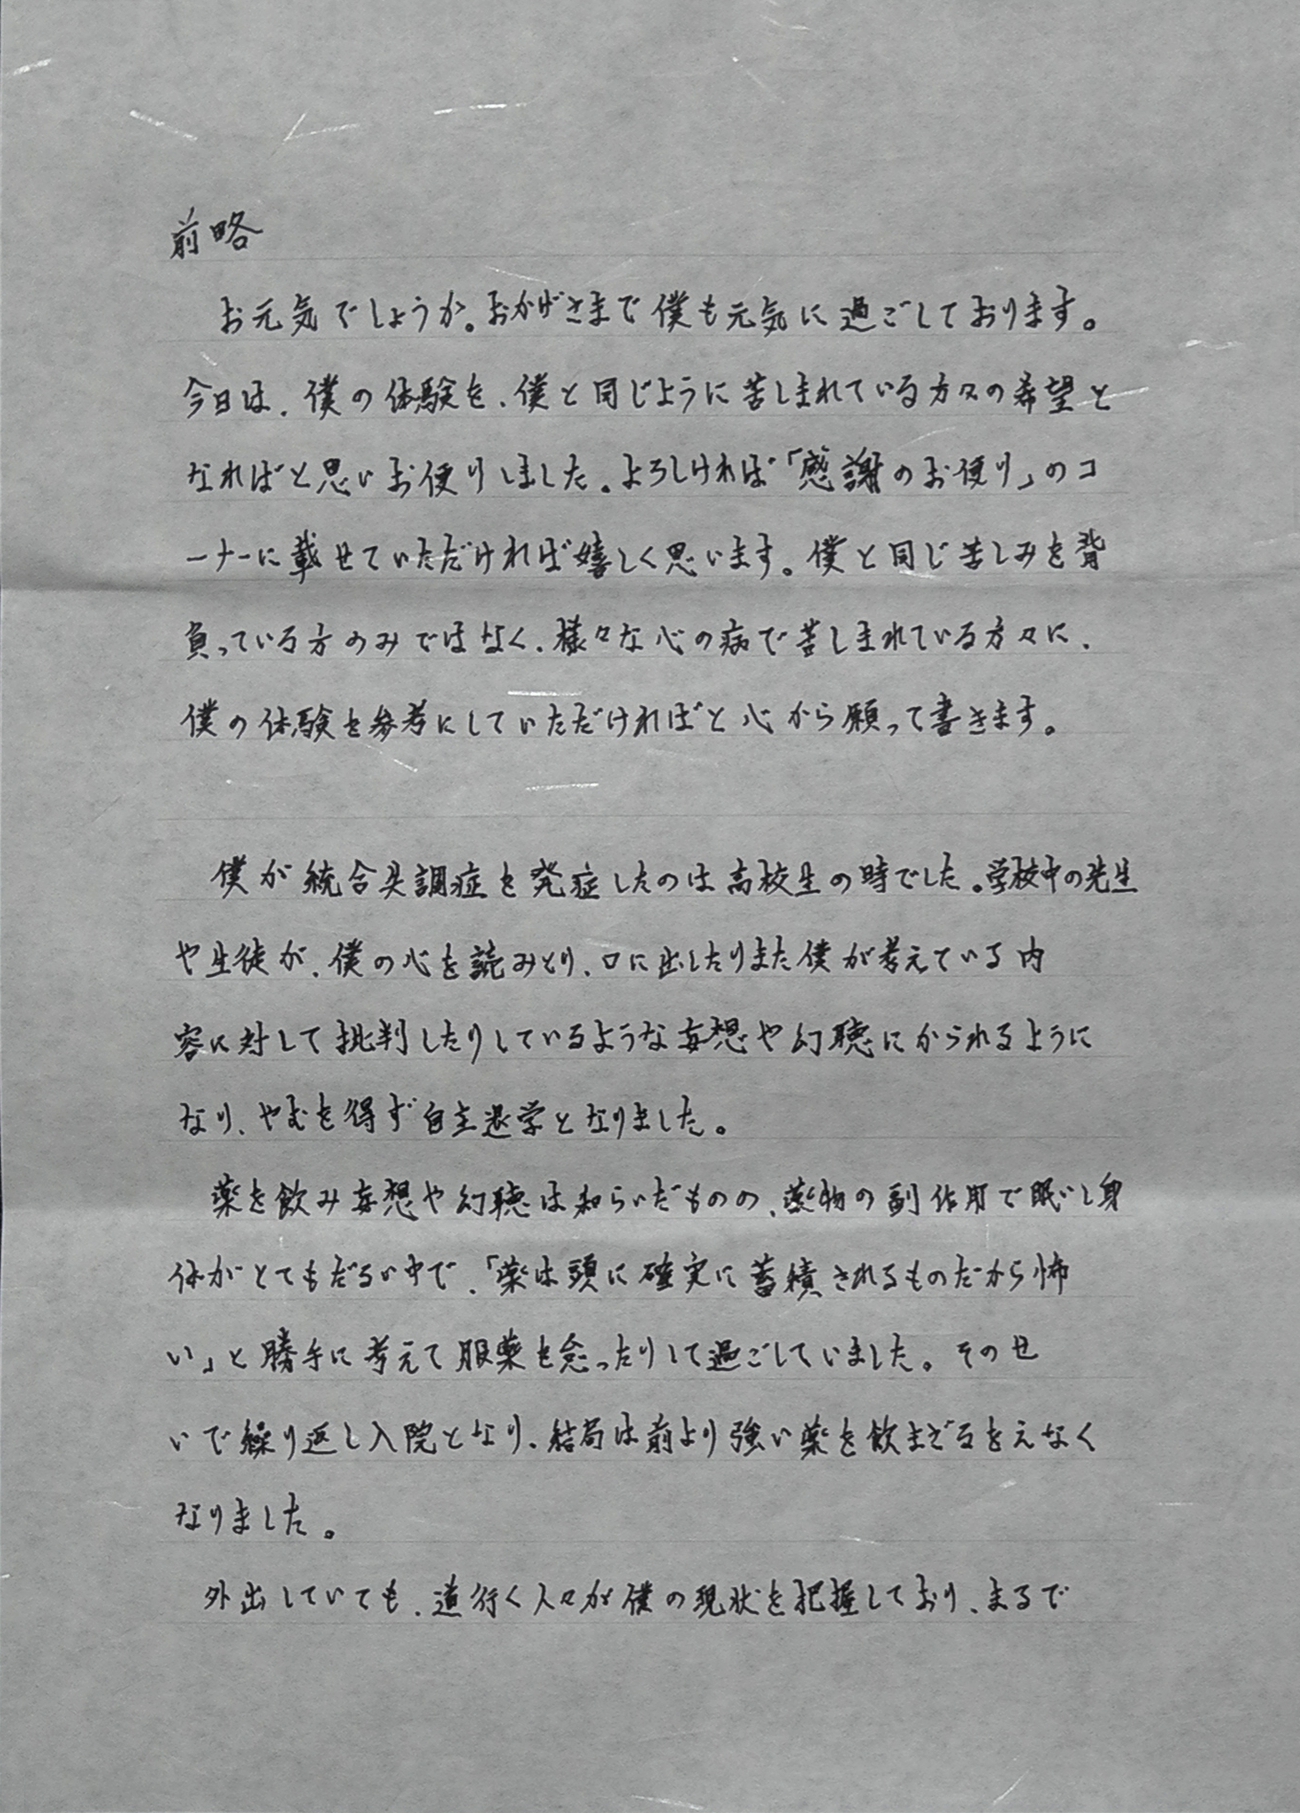 前略
お元気でしょうか。おかげさまで僕も元気に過ごしております。
今日は、僕の体験を、僕と同じように苦しまれている方々の希望と
なればと思いお便りしました。よろしければ「感謝のお便り」のコ
ーナーに載せていただければ嬉しく思います。僕と同じ苦しみを背
負っている方のみではなく、様々な心の病で苦しまれている方々に、
僕の体験を参考にしていただければと心から願って書きます。
僕が統合失調症を発症したのは高校生の時でした。学校中の先生
や生徒が、僕の心を読みとり、口に出したりまた僕が考えている内
容に対して批判したりしているような妄想や幻聴にかられるように
なり、やむを得ず自主退学となりました。
薬を飲み妄想や幻聴は和らいだものの、薬物の副作用で眠いし身
体がとてもだるい中で、「薬は頭に確実に蓄積されるものだから怖
い」と勝手に考えて服薬を怠ったりして過ごしていました。そのせ
いで繰り返し入院となり、結局は前より強い薬を飲まざるをえなく
なりました。
外出していても、道行く人々が僕の現状を把握しており、まるで